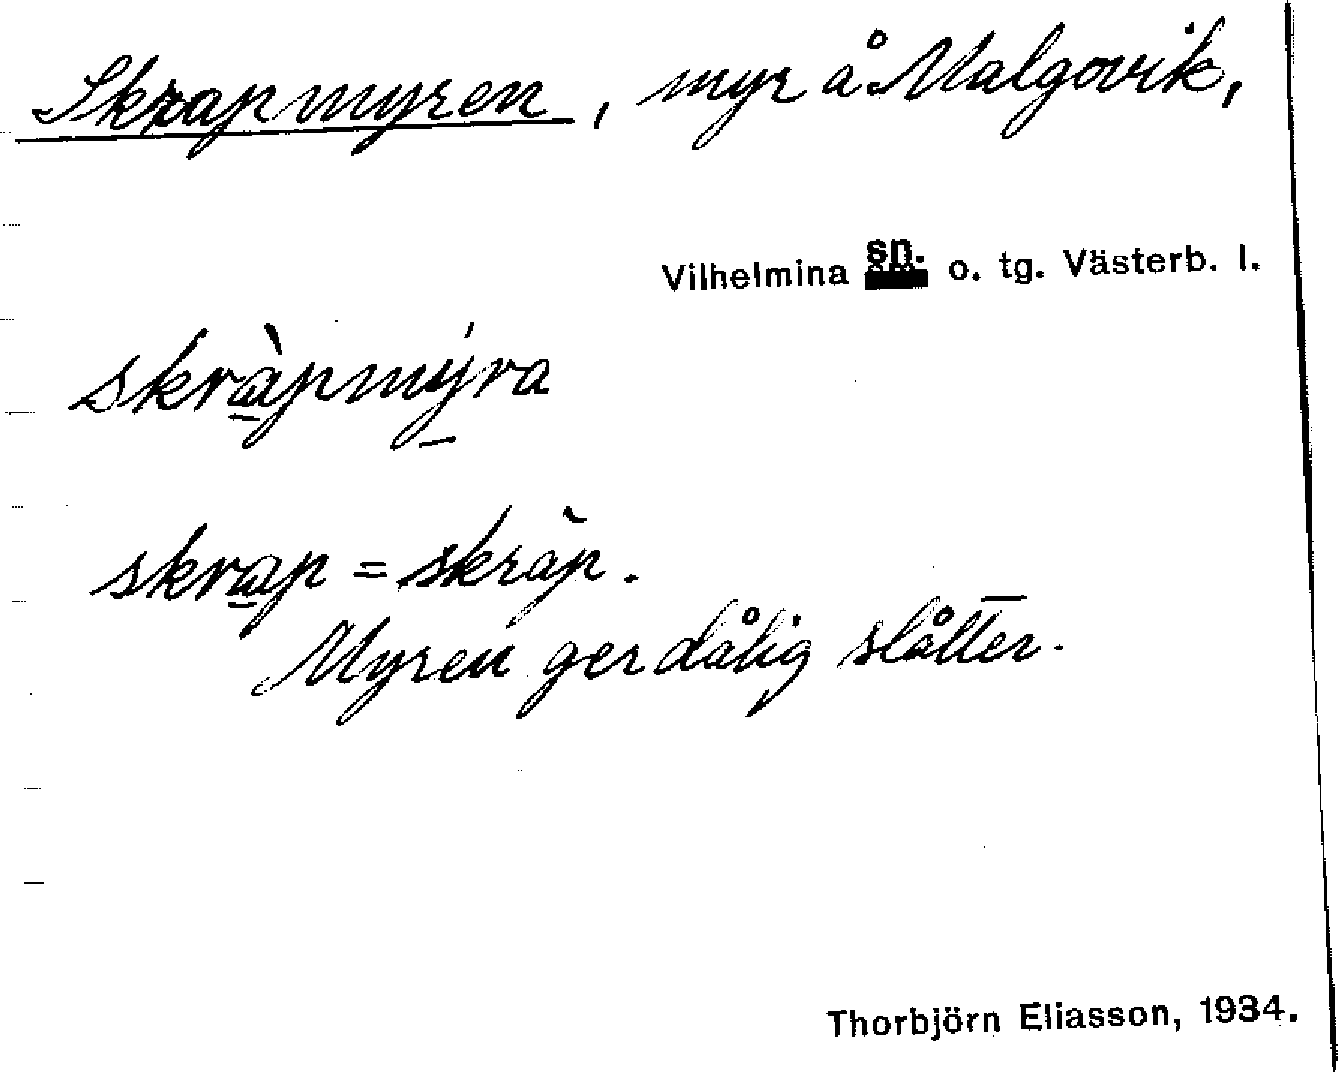 Skrapmyren, myr å Malgovik,
Vilhelmina sn. o. tg. Västerb. l.
skrà̱pmý̱ra
skra̱p = skräp.
Myren ger dålig slåtter.
Thorbjörn Eliasson, 1934.